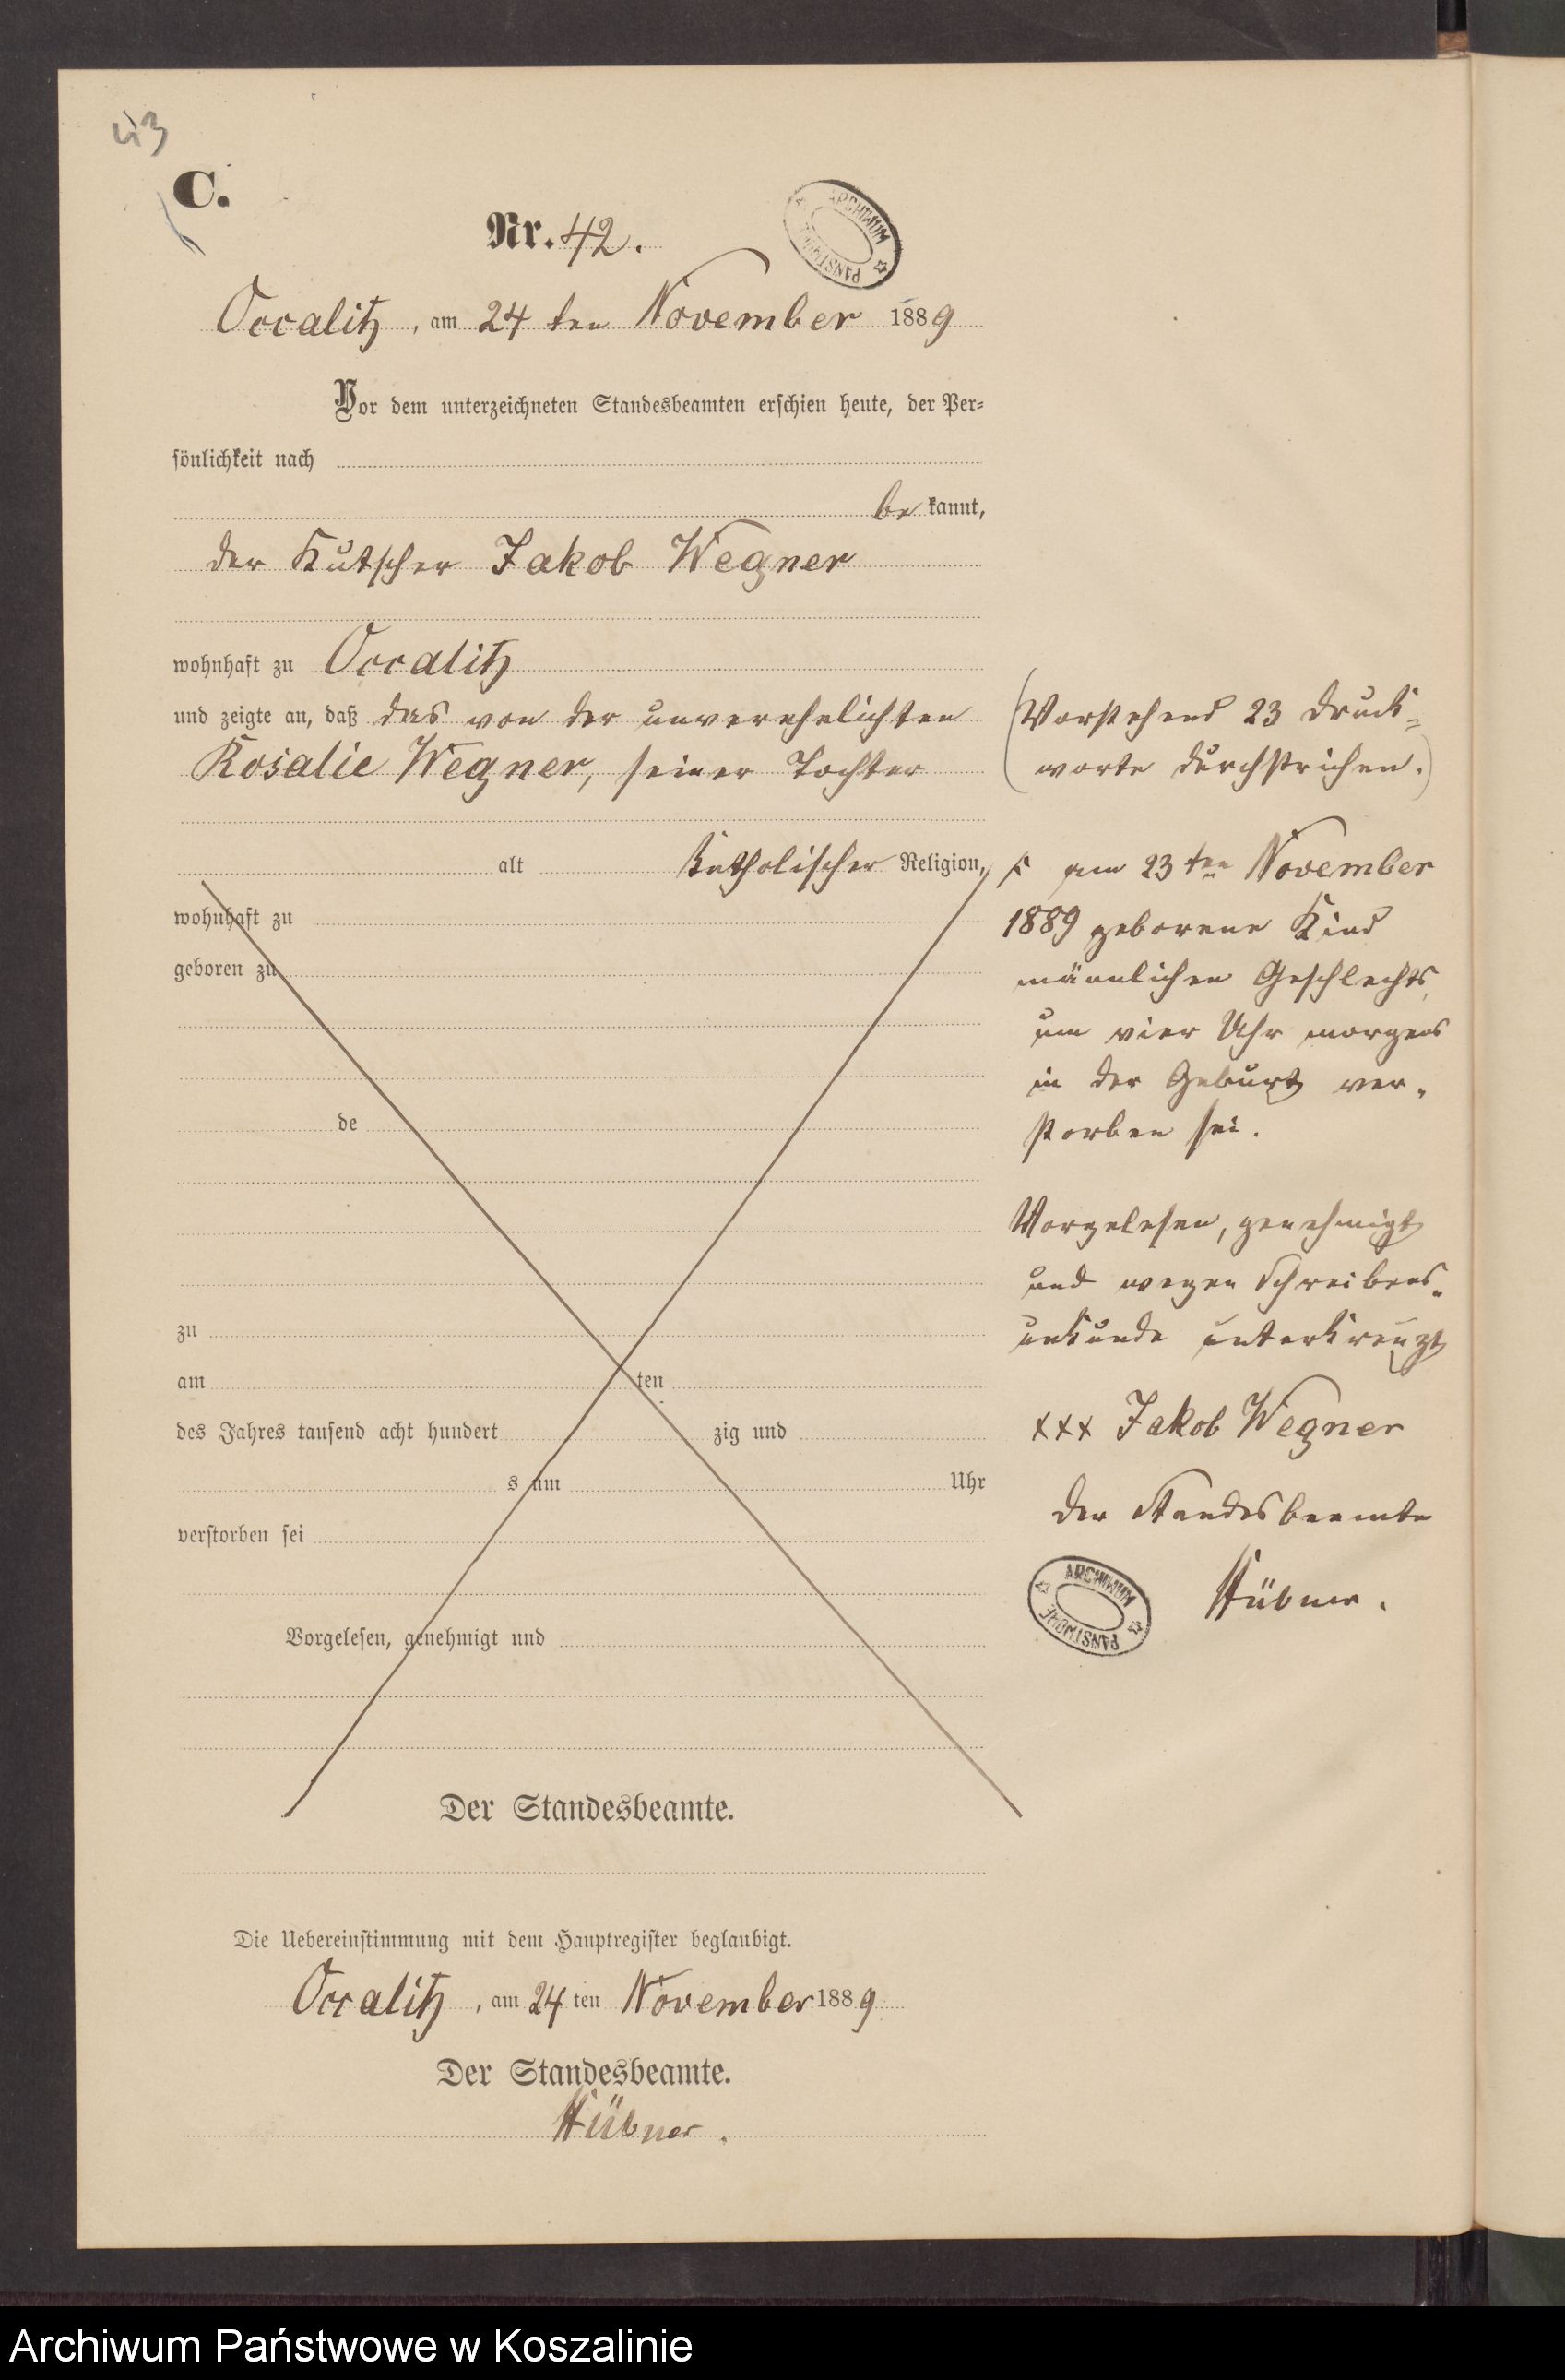 43
C.
Nr. 42.
ARCHIWUM PAŃSTWOWE
Occalitz, am 24 ten November 1889
Vor dem unterzeichneten Standesbeamten erschien heute, der Per=
sönlichkeit nach
be kannt,
der Kutscher Jakob Wegner
wohnhaft zu Occalitz
und zeigte an, daß das von der unverehelichten
Rosalie Wegner, seiner Tochter
alt katholischer Religion,
wohnhaft zu
geboren zu
de
zu
am ten
des Jahres tausend acht hundert zig und
s um Uhr
verstorben sei
Vorgelesen, genehmigt und
Der Standesbeamte.
(Vorstehend 23 Druck=
worte durchstrichen.)
am 23ten November
1889 geborene Kind
männlichen Geschlechts,
um vier Uhr morgens
in der Geburt ver-
storben sei.
Vorgelesen, genehmigt
und wegen Schreibens-
unkunde unterkreuzt
xxx Jakob Wegner
Der Standesbeamte
Hübner.
ARCHIWUM PAŃSTWOWE
Die Uebereinstimmung mit dem Hauptregister beglaubigt.
Occalitz, am 24 ten November 1889
Der Standesbeamte.
Hübner.
Archiwum Państwowe w Koszalinie